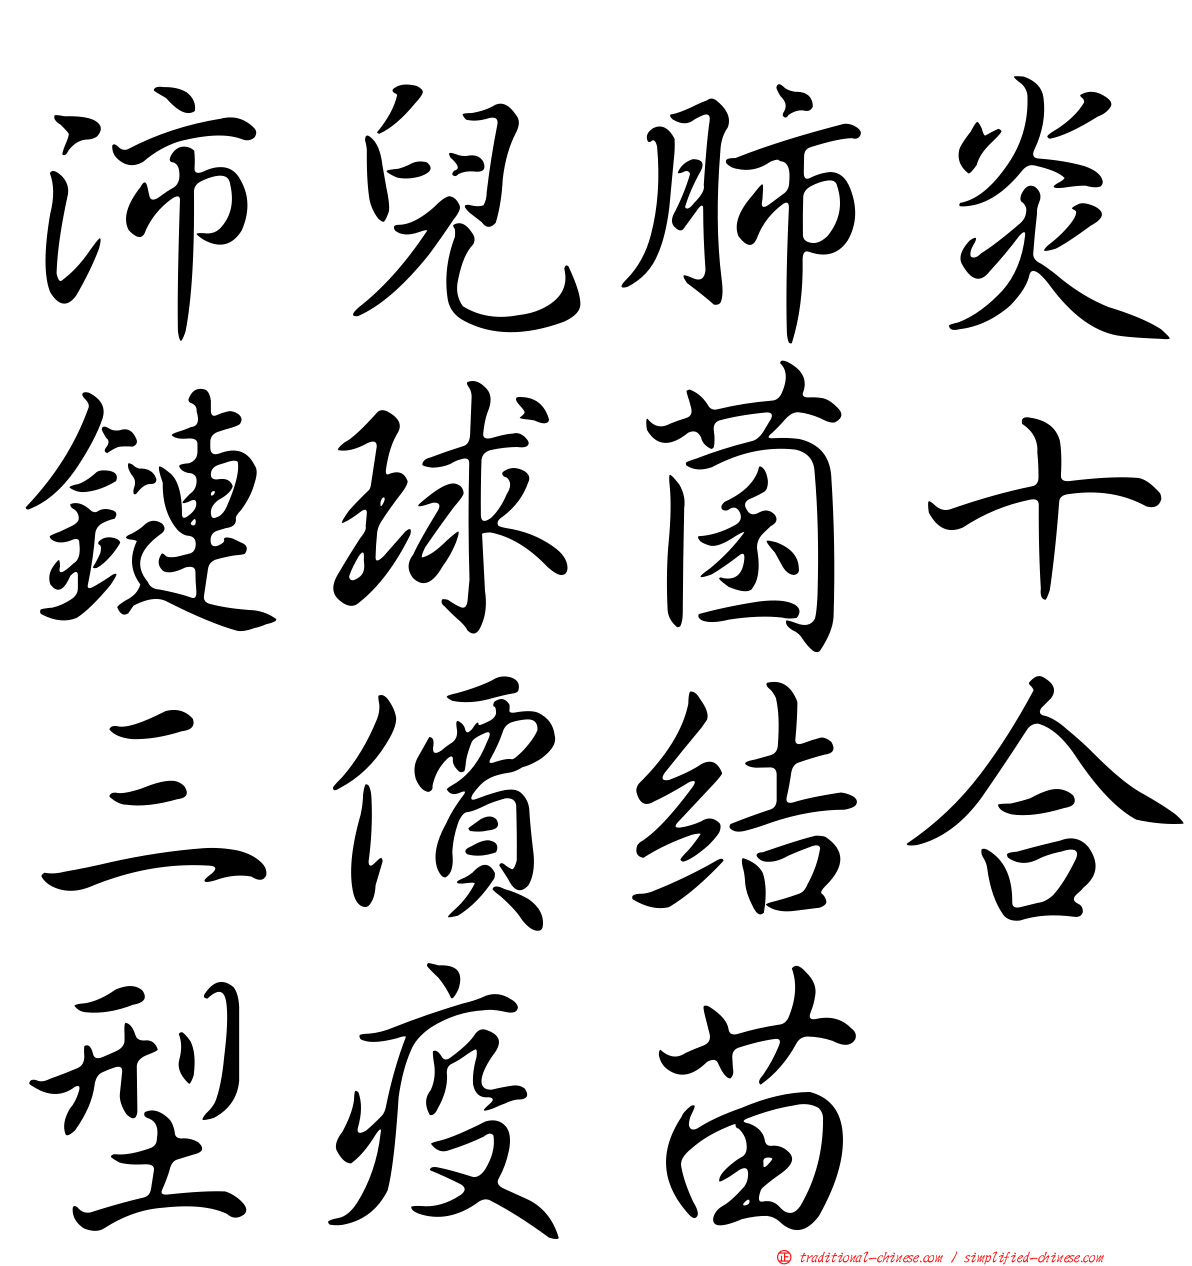 沛兒肺炎
鏈球菌十
三價結合
型疫苗
正 traditional-chinese.com / simplified-chinese.com